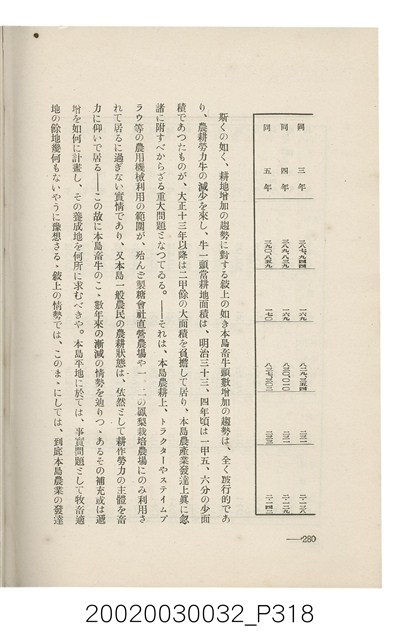 同三年 三八七、九四四 一六九 八二九、三五四 二三二 二・一三八
同四年 三八九、八三九 一六九 二三一 二・一二九
同五年 三九〇、八五九 一七〇 二三三 二・一四三
斯くの如く、耕地增加の趨勢に對する敍上の如き本島畜牛頭數增加の趨勢は、全く跛行的であ
り、農耕勞力牛の減少を來し、牛一頭當耕地面積は、明治三十三、四年頃は一甲五、六分の少面
積であつたものが、大正十三年以降は二甲餘の大面積を負擔して居り、本島農產業發達上眞に忽
諸に附すべからざる重大問題となつてゐる。――それは、本島農耕上、トラクターやスティムプ
ラウ等の農用機械利用の範圍が、殆んど製糖會社直營農場や一、二の鳳梨栽培農場にのみ利用さ
れて居るに過ぎない實情であり、又本島一般農民の農耕狀態は、依然として耕作勞力の主體を畜
力に仰いで居る――この故に本島畜牛のこゝ數年來の漸減の情勢を辿りつゝあるその補充或は遞
增を如何に計畫し、その養成地を何所に求むべきや。本島平地に於ては、事實問題として牧畜適
地の餘地幾何もないやうに豫想さる、敍上の情勢では、このまゝにしては、到底本島農業の發達
――280
20020030032_P318